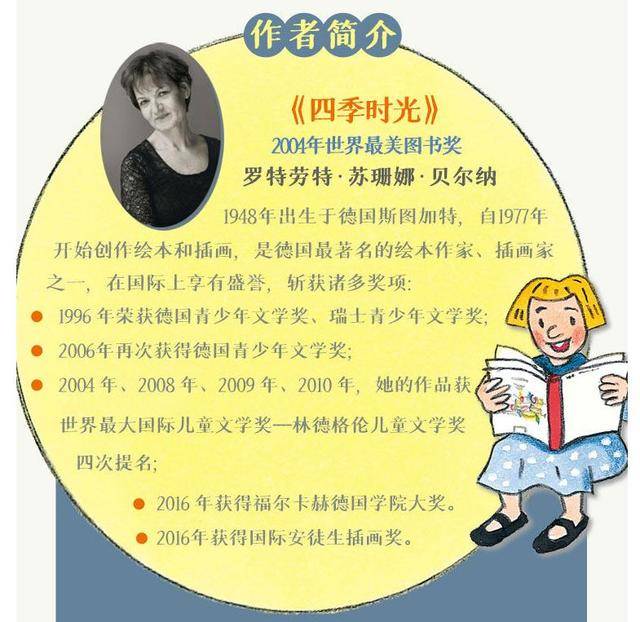 作者简介
《四季时光》
2004年世界最美图书奖
罗特劳特·苏珊娜·贝尔纳
1948年出生于德国斯图加特，自1977年
开始创作绘本和插画，是德国最著名的绘本作家、插画家
之一，在国际上享有盛誉，斩获诸多奖项:
1996 年荣获德国青少年文学奖、瑞士青少年文学奖;
2006年再次获得德国青少年文学奖;
2004 年、2008 年、2009 年、2010 年，她的作品获
世界最大国际儿童文学奖—林德格伦儿童文学奖
四次提名;
2016 年获得福尔卡赫德国学院大奖。
2016年获得国际安徒生插画奖。